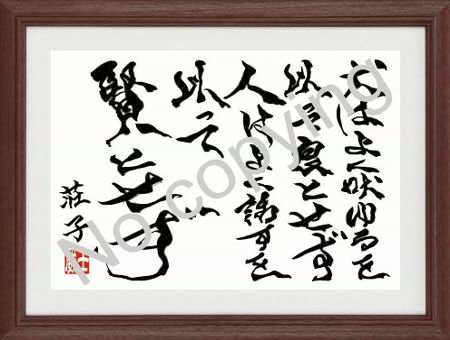 犬はよく吠ゆるを
以て良とせず
人はよく話すを
以って
賢とせず
荘子
No copying